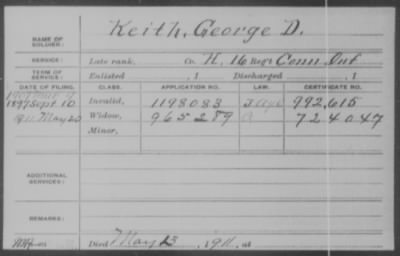 NAME OF SOLDIER: Keith, George D.
SERVICE: Late rank, Co. H, 16 Reg't Conn Inf
TERM OF SERVICE: Enlisted , 1 Discharged , 1
DATE OF FILING. CLASS. APPLICATION NO. LAW. CERTIFICATE NO.
1897 Sept 10 Invalid, 1198083 992,615
1911 May 20 Widow, 965289 724047
Minor,
ADDITIONAL SERVICES:
REMARKS:
Died May 13, 1911, at